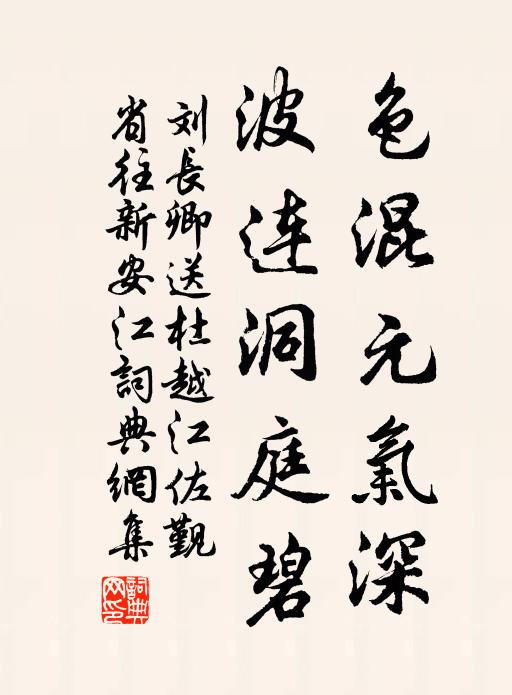 色混元氣深
波连洞庭碧
刘長卿送杜越江佐觐
省往新安江詞典網集
詞典
网印